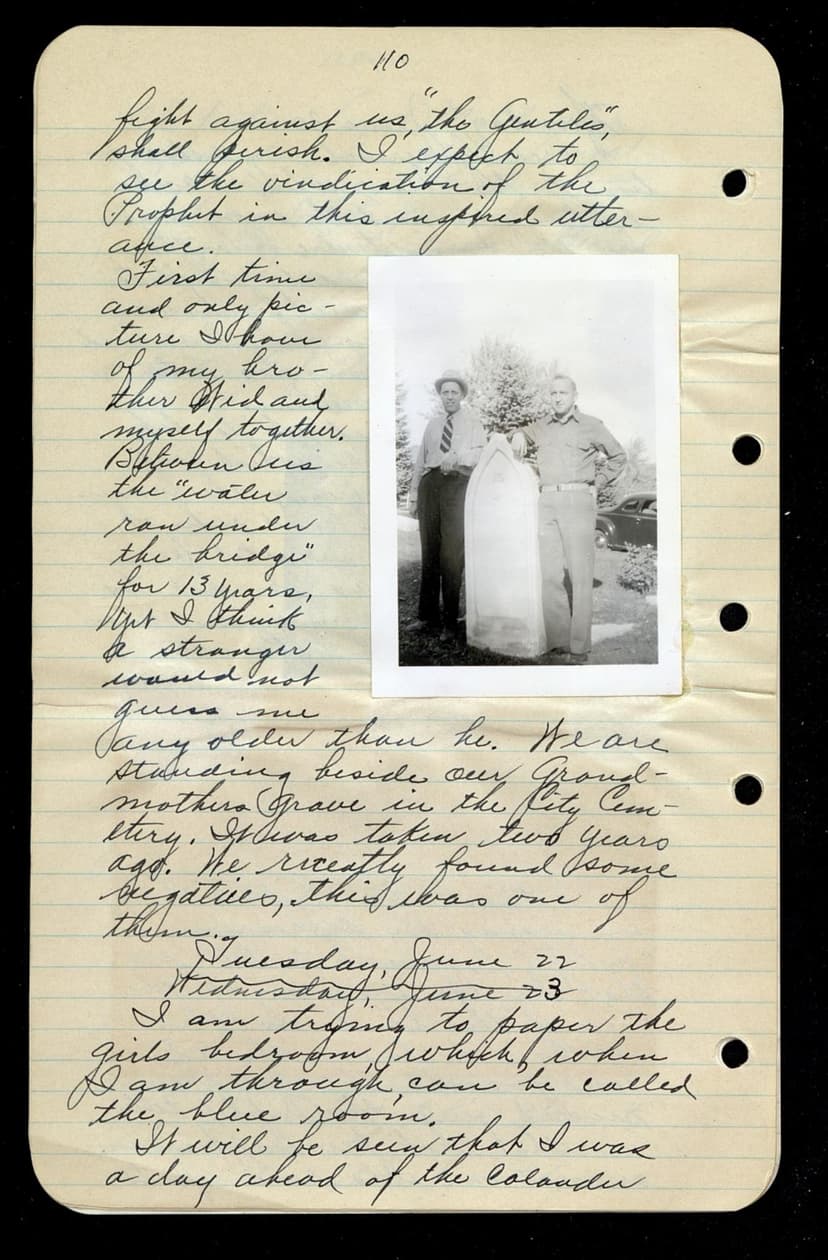 110
fight against us, "the Gentiles",
shall perish. I expect to
see the vindication of the
Prophet in this inspired utter-
ance.
First time
and only pic-
ture I have
of my bro-
ther Wid and
myself together.
Between us
the "water
ran under
the bridge"
for 13 years,
Yet I think
a stranger
would not
guess me
any older than he. We are
standing beside our Grand-
mothers Grave in the City Cem-
etery. It was taken two years
ago. We recently found some
negatives, this was one of
them.
Tuesday, June 22
Wednesday, June 23
I am trying to paper the
girls bedroom, which, when
I am through, can be called
the blue room.
It will be seen that I was
a day ahead of the Calander